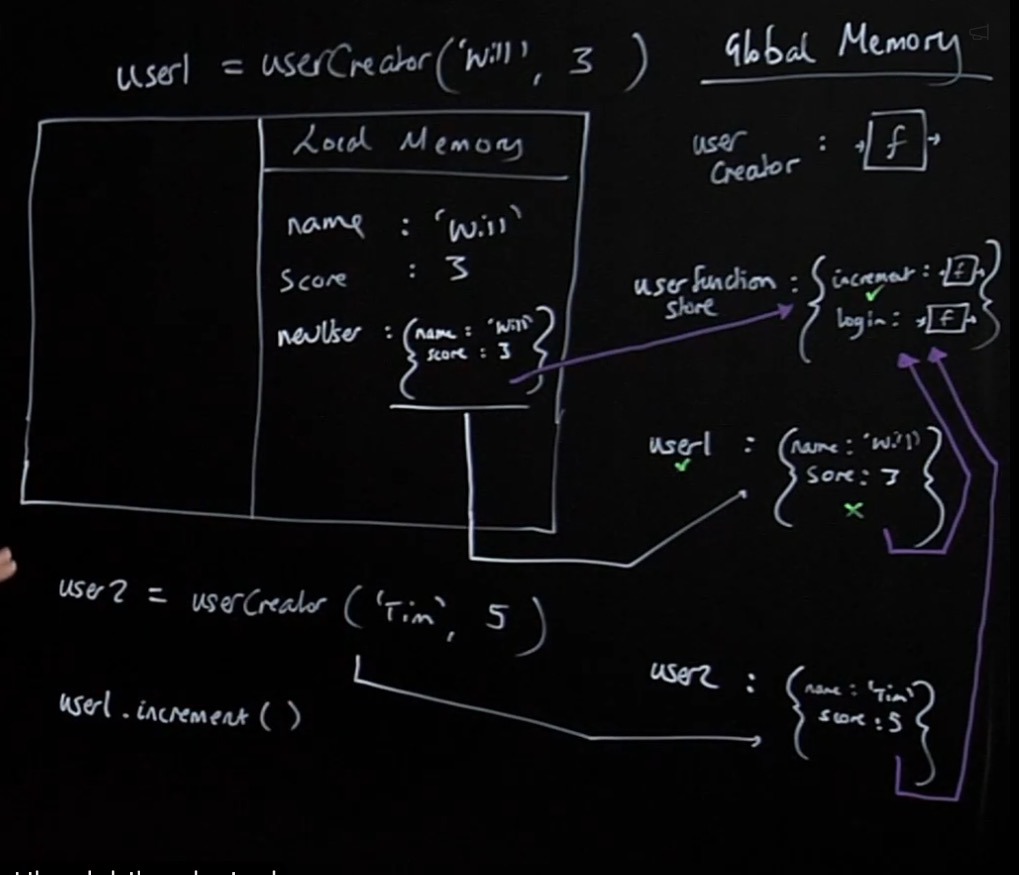 user1 = userCreator('Will', 3 )
Global Memory
user
Creator : f
Local Memory
name : 'Will'
Score : 3
newUser : { name : 'Will'
score : 3 }
userfunction
store : { increment : f
login : f }
user1 : { name : 'Will'
Sore : 3 }
user2 = userCreator ('Tim', 5 )
user1.increment ( )
user2 : { name : 'Tim'
score : 5 }